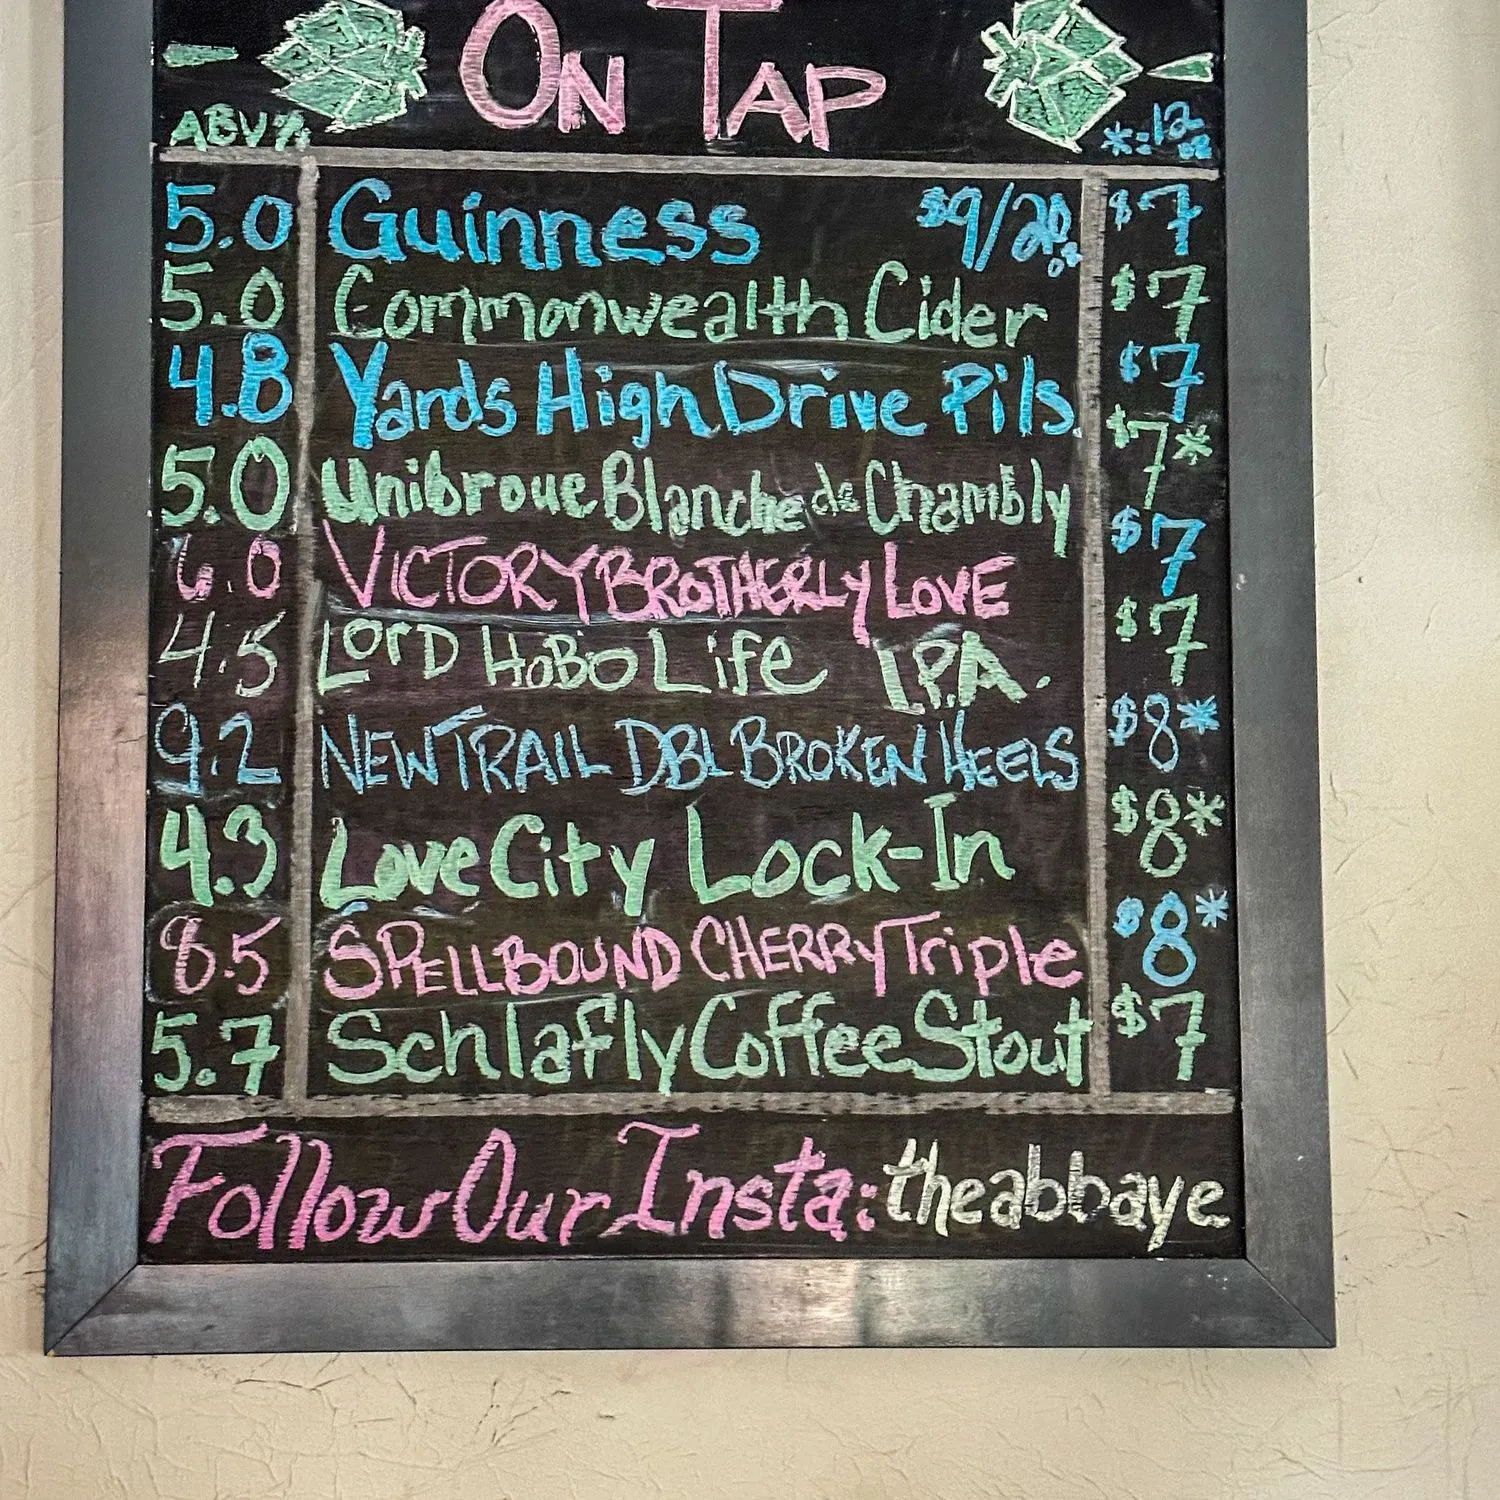 On Tap
ABV% *=12 oz
5.0 Guinness $9/20oz. $7
5.0 Commonwealth Cider $7
4.8 Yards High Drive Pils. $7
5.0 Unibroue Blanche de Chambly $7*
6.0 VICTORY BROTHERLY LOVE $7
4.5 LorD HoBo Life I.P.A. $7
9.2 NEW TRAIL DBL BROKEN HEELS $8*
4.3 Love City Lock-In $8*
8.5 SPELLBOUND CHERRY Triple $8*
5.7 Schlafly Coffee Stout $7
Follow Our Insta: theabbaye